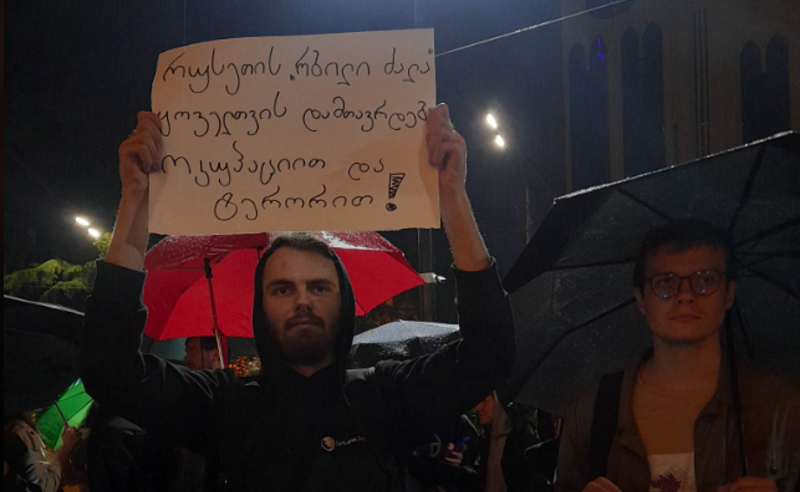 რუსეთის „რბილი ძალა"
ყოველთვის დამთავრდებ
ოკუპაციით და
ტერორით!